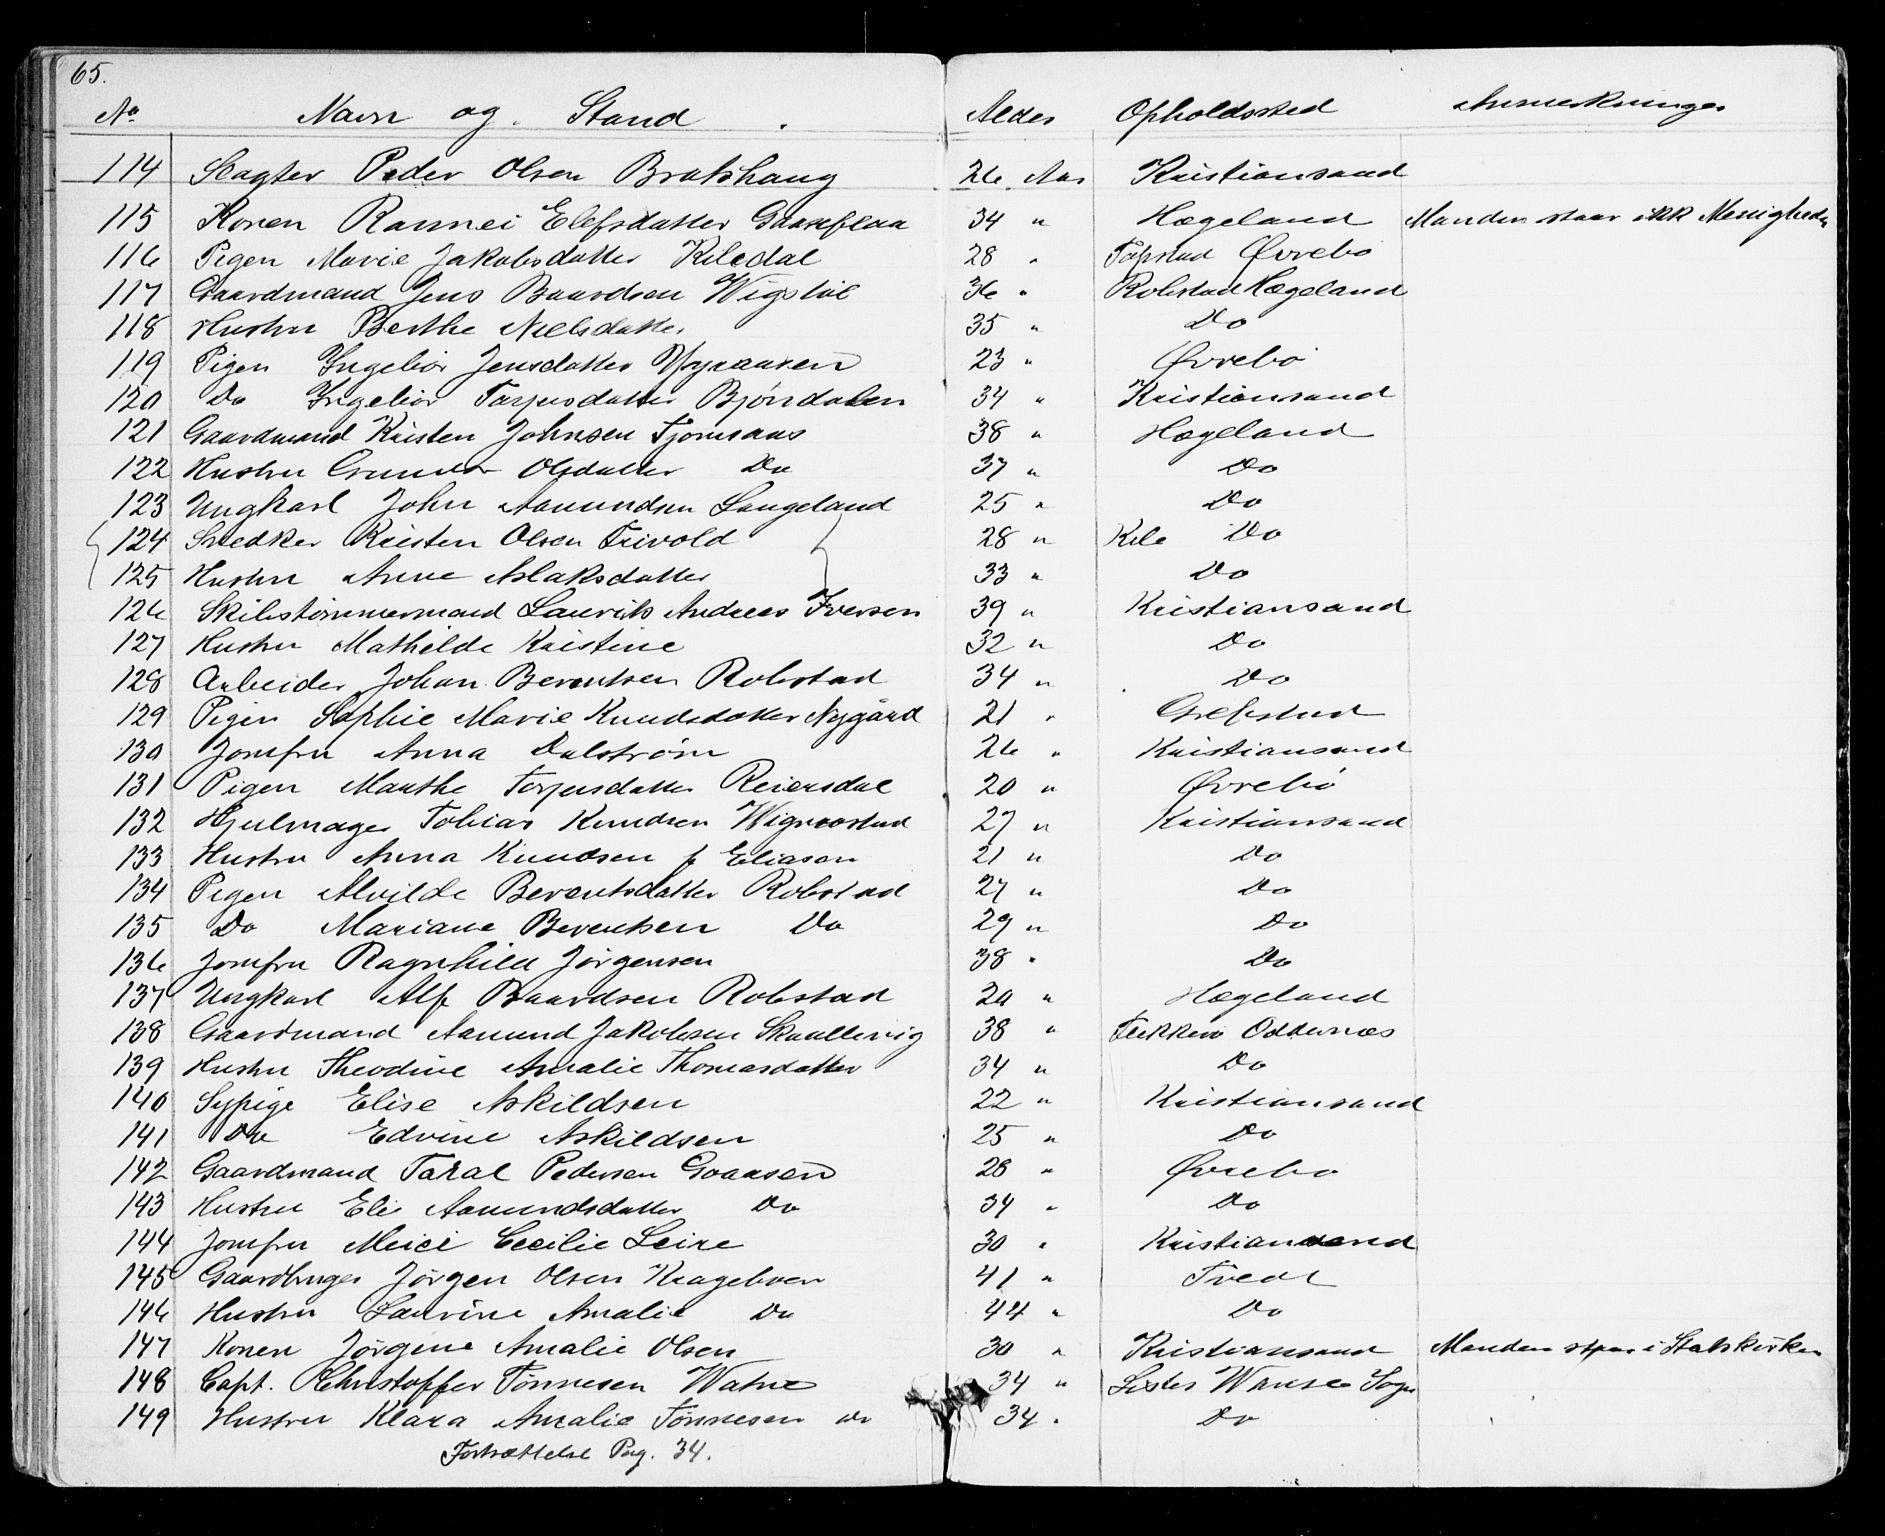 65.
No Navn og Stand. Alder Opholdssted Anmerkninger
114 Slagter Peder Olsen Bratshaug 26 Aar Kristiansand
115 Konen Rannei Elefsdatter Gaaseflaa 34 " Hægeland Manden staar ikk Menigheden
116 Pigen Marie Jakobsdatter Kiledal 28 " Øvrebø
117 Gaardmand Jens Baardsen Wigstøl 36 " Robstad Hægeland
118 Hustru Berthe Nielsdatter 35 " Do
119 Pigen Ingebor Jensdatter 23 " Øvrebø
120 Do Ingebor Tarjusdatter Bjørndalen 34 " Kristiansand
121 Gaardmand Kristen Johnsen Tjomsaas 38 " Hægeland
122 Hustru Gunvor Olsdatter Do 37 " Do
123 Ungkarl John Aamundsen Langeland 25 " Do
124 Snedker Kristen Olsen Trivold 28 " Kile Do
125 Hustru Anne Aslaksdatter 33 " Do
126 Skibstømmermand Laurits Andreas Iversen 39 " Kristiansand
127 Hustru Mathilde Kristine 32 " Do
128 Arbeider Johan Berentsen Robstad 34 " Do
129 Pigen Sophie Marie Knudsdatter Nygård 21 " Grebstad
130 Jomfru Anna Dalstrøm 26 " Kristiansand
131 Pigen Marthe Torjusdatter Reiersdal 20 " Øvrebø
132 Hjulmager Tobias Knudsen Wigvostad 27 " Kristiansand
133 Hustru Anna Knudsen f Eliasen 21 " Do
134 Pigen Alvilde Berentsdatter Robstad 27 " Do
135 Do Mariane Berentsen Do 29 " Do
136 Jomfru Ragnhild Jørgensen 38 " Do
137 Ungkarl Alf Baardsen Robstad 20 " Hægeland
138 Gaardmand Aamund Jakobsen Skaallevig 38 " Flekkerø Oddernæs
139 Hustru Theodine Amalie Thomasdatter 34 " Do
140 Sypige Elise Askildsen 22 " Kristiansand
141 Do Edvine Askildsen 25 " Do
142 Gaardmand Taral Pedersen Graasen 28 " Øvrebø
143 Hustru Eli Aamundsdatter Do 34 " Do
144 Jomfru Meici Cecilie Leire 30 " Kristiansand
145 Gaardbruger Jørgen Olsen Krageboen 41 " Tvedt
146 Hustru Laurine Amalie Do 44 " Do
147 Konen Jørgine Amalie Olsen 30 " Kristiansand Manden staar i Statskirken
148 Capt. Christoffer Tønnesen Watne 34 " Lister Wanse Sogn
149 Hustru Klara Amalie Tønnesen do 34 " Do
Fortsættelse Pag. 34.